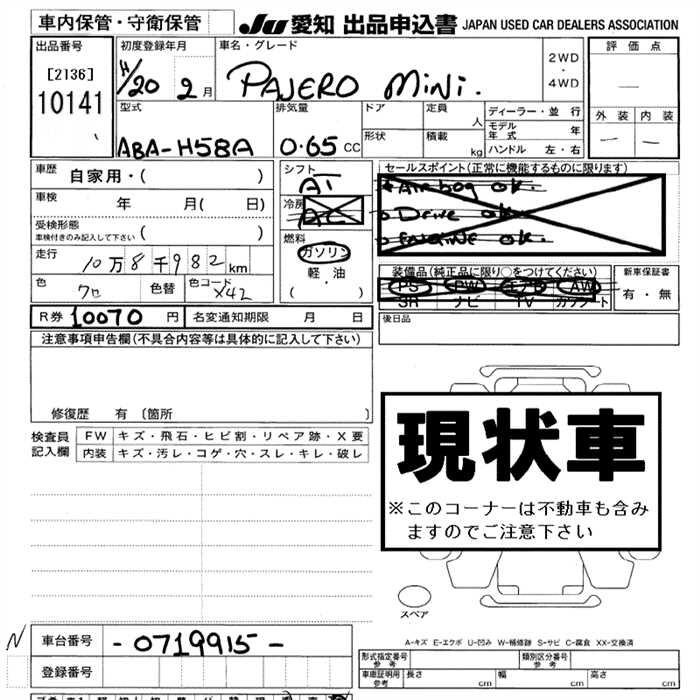 車内保管・守衛保管 JU 愛知 出品申込書 JAPAN USED CAR DEALERS ASSOCIATION
出品番号
[2136]
10141
初度登録年月
H/20 2月
車名・グレード
PAJERO MINI.
2WD
・
4WD
評価点
—
外装 内装
— —
型式
ABA-H58A
排気量
0.65 CC
ドア
形状
定員 人
積載 kg
ディーラー・並行
モデル年式 年
ハンドル 左・右
車歴 自家用・( )
車検 年 月( 日)
受検形態
車検付きのみ記入して下さい ( )
走行 10万8千982km
色 クロ 色替 色コード X42
シフト
AT
冷房
AC
燃料
ガソリン
軽・油
( )
セールスポイント(正常に機能するものに限ります)
Airbag OK.
Drive OK.
ENGINE OK.
装備品(純正品に限り○をつけてください)
PS PW エアB AW
SR ナビ TV カワシート
新車保証書
有・無
R券 10070 円 名変通知期限 月 日
後日品
注意事項申告欄(不具合内容等は具体的に記入して下さい)
修復歴 有 [箇所 ]
検査員記入欄
FW キズ・飛石・ヒビ割・リペア跡・X要
内装 キズ・汚レ・コゲ・穴・スレ・キレ・破レ
現状車
※このコーナーは不動車も含み
ますのでご注意下さい
スペア
A-キズ E-エクボ U-凹み W-補修跡 S-サビ C-腐食 XX-交換済
N 車台番号 -0719915-
登録番号
形式指定番号
参考
類別区分番号
参考
車車証明用
参考 長さ cm 幅 cm 高さ cm